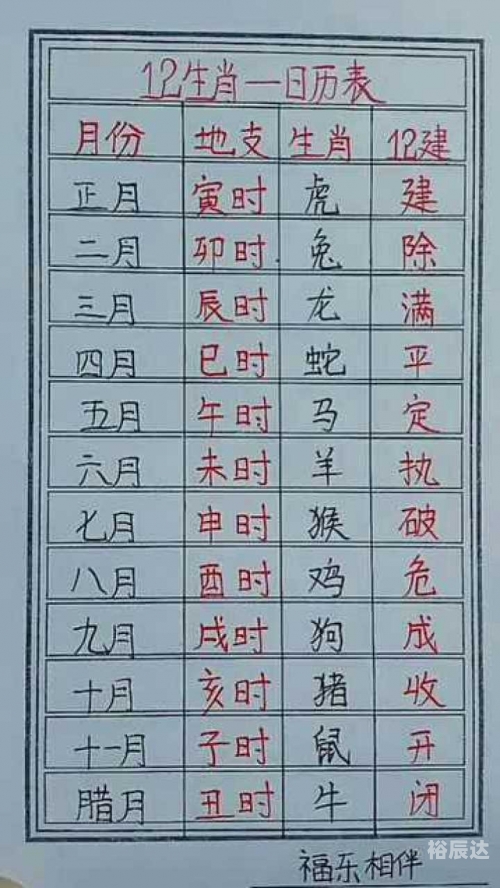 12生肖一日历表
月份 地支 生肖 12建
正月 寅时 虎 建
二月 卯时 兔 除
三月 辰时 龙 满
四月 巳时 蛇 平
五月 午时 马 定
六月 未时 羊 执
七月 申时 猴 破
八月 酉时 鸡 危
九月 戌时 狗 成
十月 亥时 猪 收
十一月 子时 鼠 开
腊月 丑时 牛 闭
福乐相伴
裕辰达